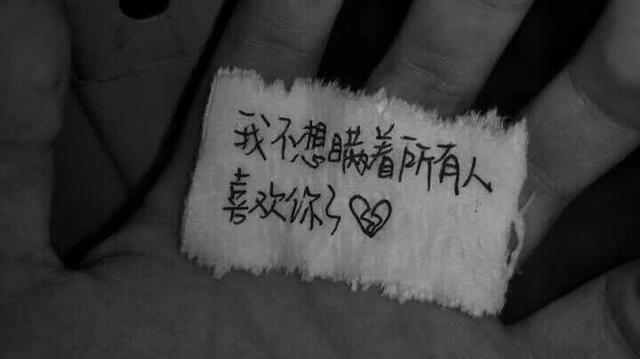 我不想瞒着所有人
喜欢你了